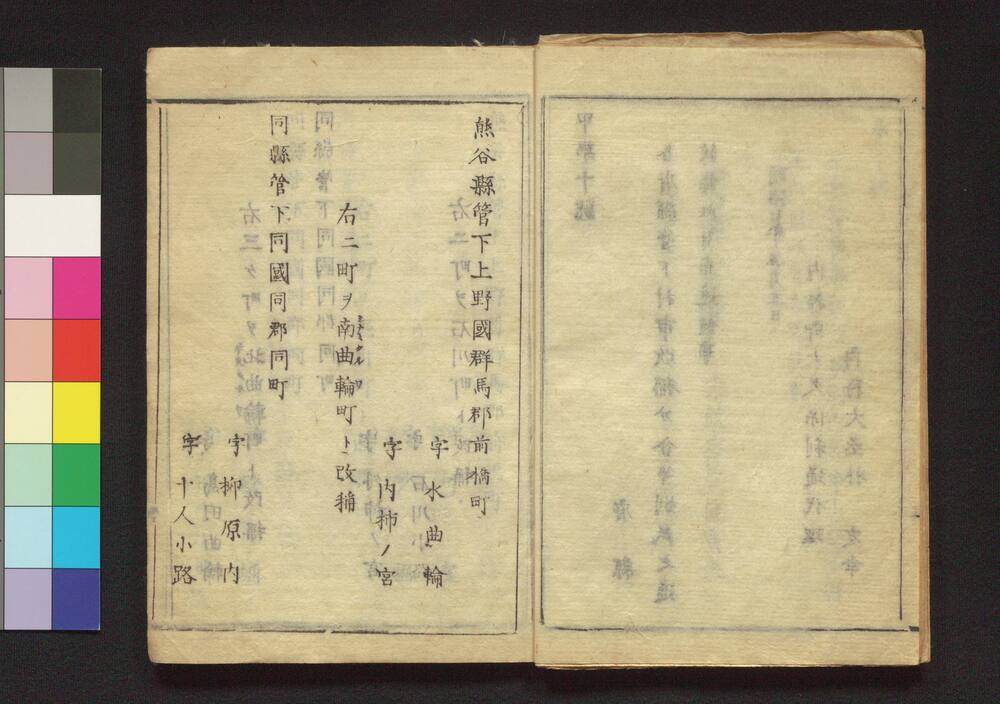 熊谷縣管下上野國群馬郡前橋町
字水曲輪
字内柿ノ宮
右二町ヲ南曲輪町ト改稱
同縣管下同國同郡同町
字柳原内
字十人小路